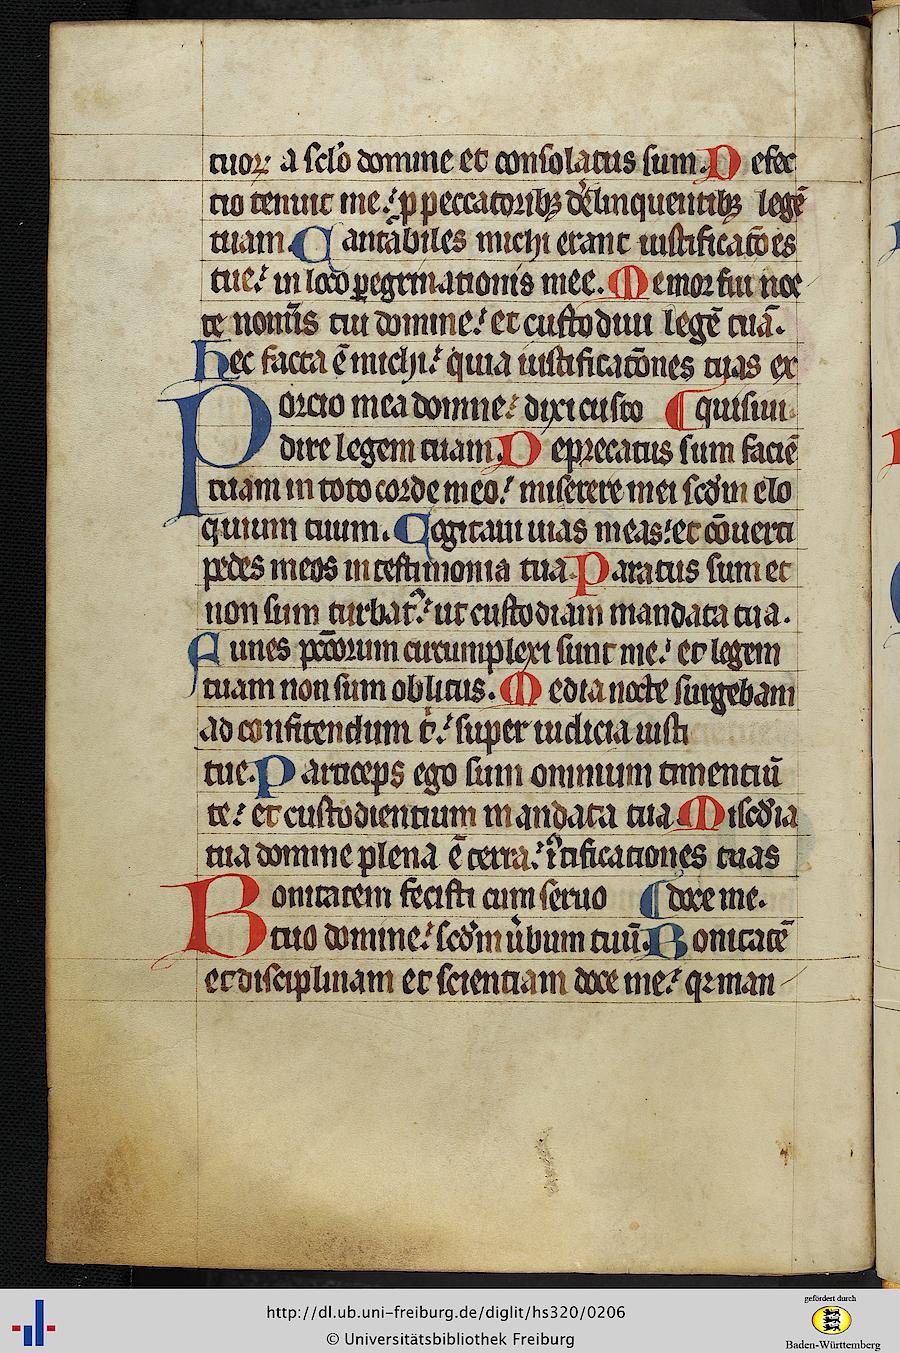 tuoꝝ a sclo domine et consolatus sum. D efec
tio tenuit me: p peccatoribꝫ delinquentibꝫ legē
tuam. C antabiles michi erant iustificatōes
tue: in loco pegrinationis mee. M emor fui noc
te nominis tui domine: et custodiui legē tuā.
Hec facta ē michi: quia iustificatōnes tuas ex
P orcio mea domine: dixi custo ¶ quisiui.
dire legem tuam. D eprecatus sum faciē
tuam in toto corde meo: miserere mei scdm elo
quium tuum. Cogitaui uias meas: et cōuerti
pedes meos in testimonia tua. P aratus sum et
non sum turbatꝰ: ut custodiam mandata tua.
F unes pccōrum circumplexi sunt me: et legem
tuam non sum oblitus. M edia nocte surgebam
ad confitendum t: super iudicia iusti
tue. P articeps ego sum omnium timentiū
te: et custodientium mandata tua. M iscdia
tua domine plena ē terra: iustificationes tuas
B onitatem fecisti cum seruo ¶ doce me.
tuo domine: scdm ubum tuū. B onitatē
et disciplinam et scientiam doce me: qꝛ man
http://dl.ub.uni-freiburg.de/diglit/hs320/0206
© Universitätsbibliothek Freiburg
gefördert durch
Baden-Württemberg